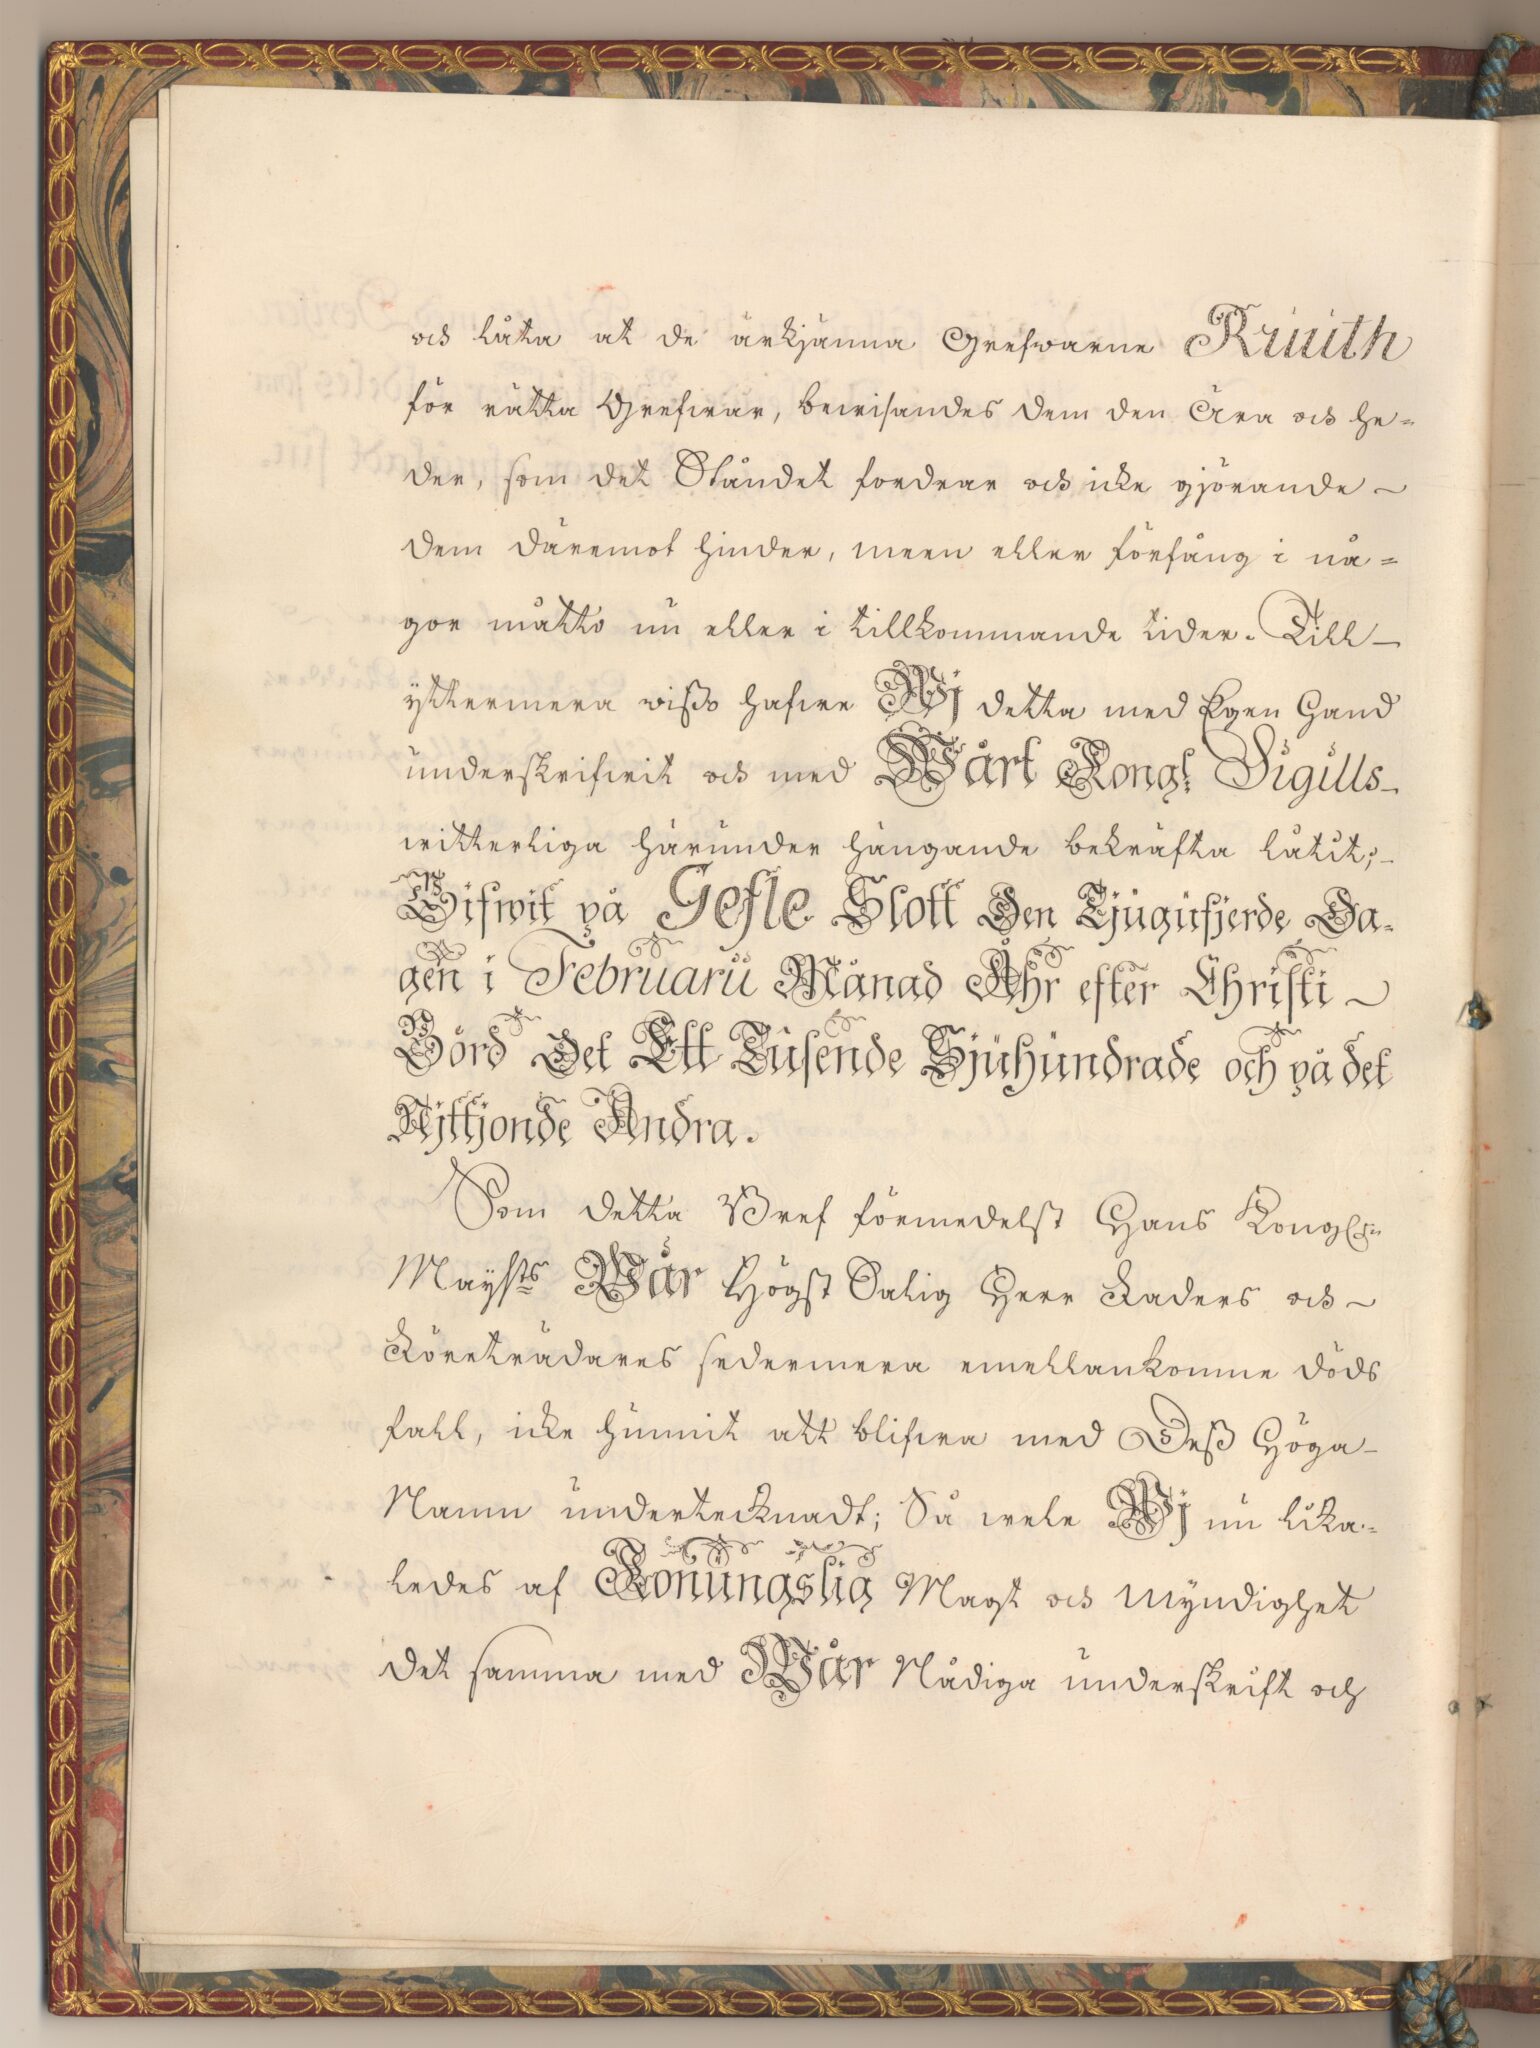 och låta at de ärkjänna Grefwarne Ruuth
för rätta Grefwar, bewisandes dem den Ära och he=
der, som det Ståndet fordrar och icke gjörande
dem däremot hinder, meen eller förfång i nå=
gor måtto nu eller i tillkommande tider. Till
yttermera wisso hafwe Wj detta med Egen Hand
underskrifwit och med Wårt Kongl. Sigills
witterliga härunder hängande bekräfta låtit;
Gifwit på Gefle Slott Den Tjugufjerde Da=
gen i Februarii Månad Åhr efter Christi
Börd Det Ett Tusende Sjuhundrade och på det
Nittjonde Andra.
Som detta Bref förmedelst Hans Kongl.
Mayſts Wår Högst Salig Herr Faders och
Företrädares sedermera emellankomne döds
fall, icke hunnit att blifwa med Deß Höga
Namn undertecknadt; Så wele Wj nu lika=
ledes af Konungslig Magt och Myndighet
det samma med Wår Nådiga underskrift och